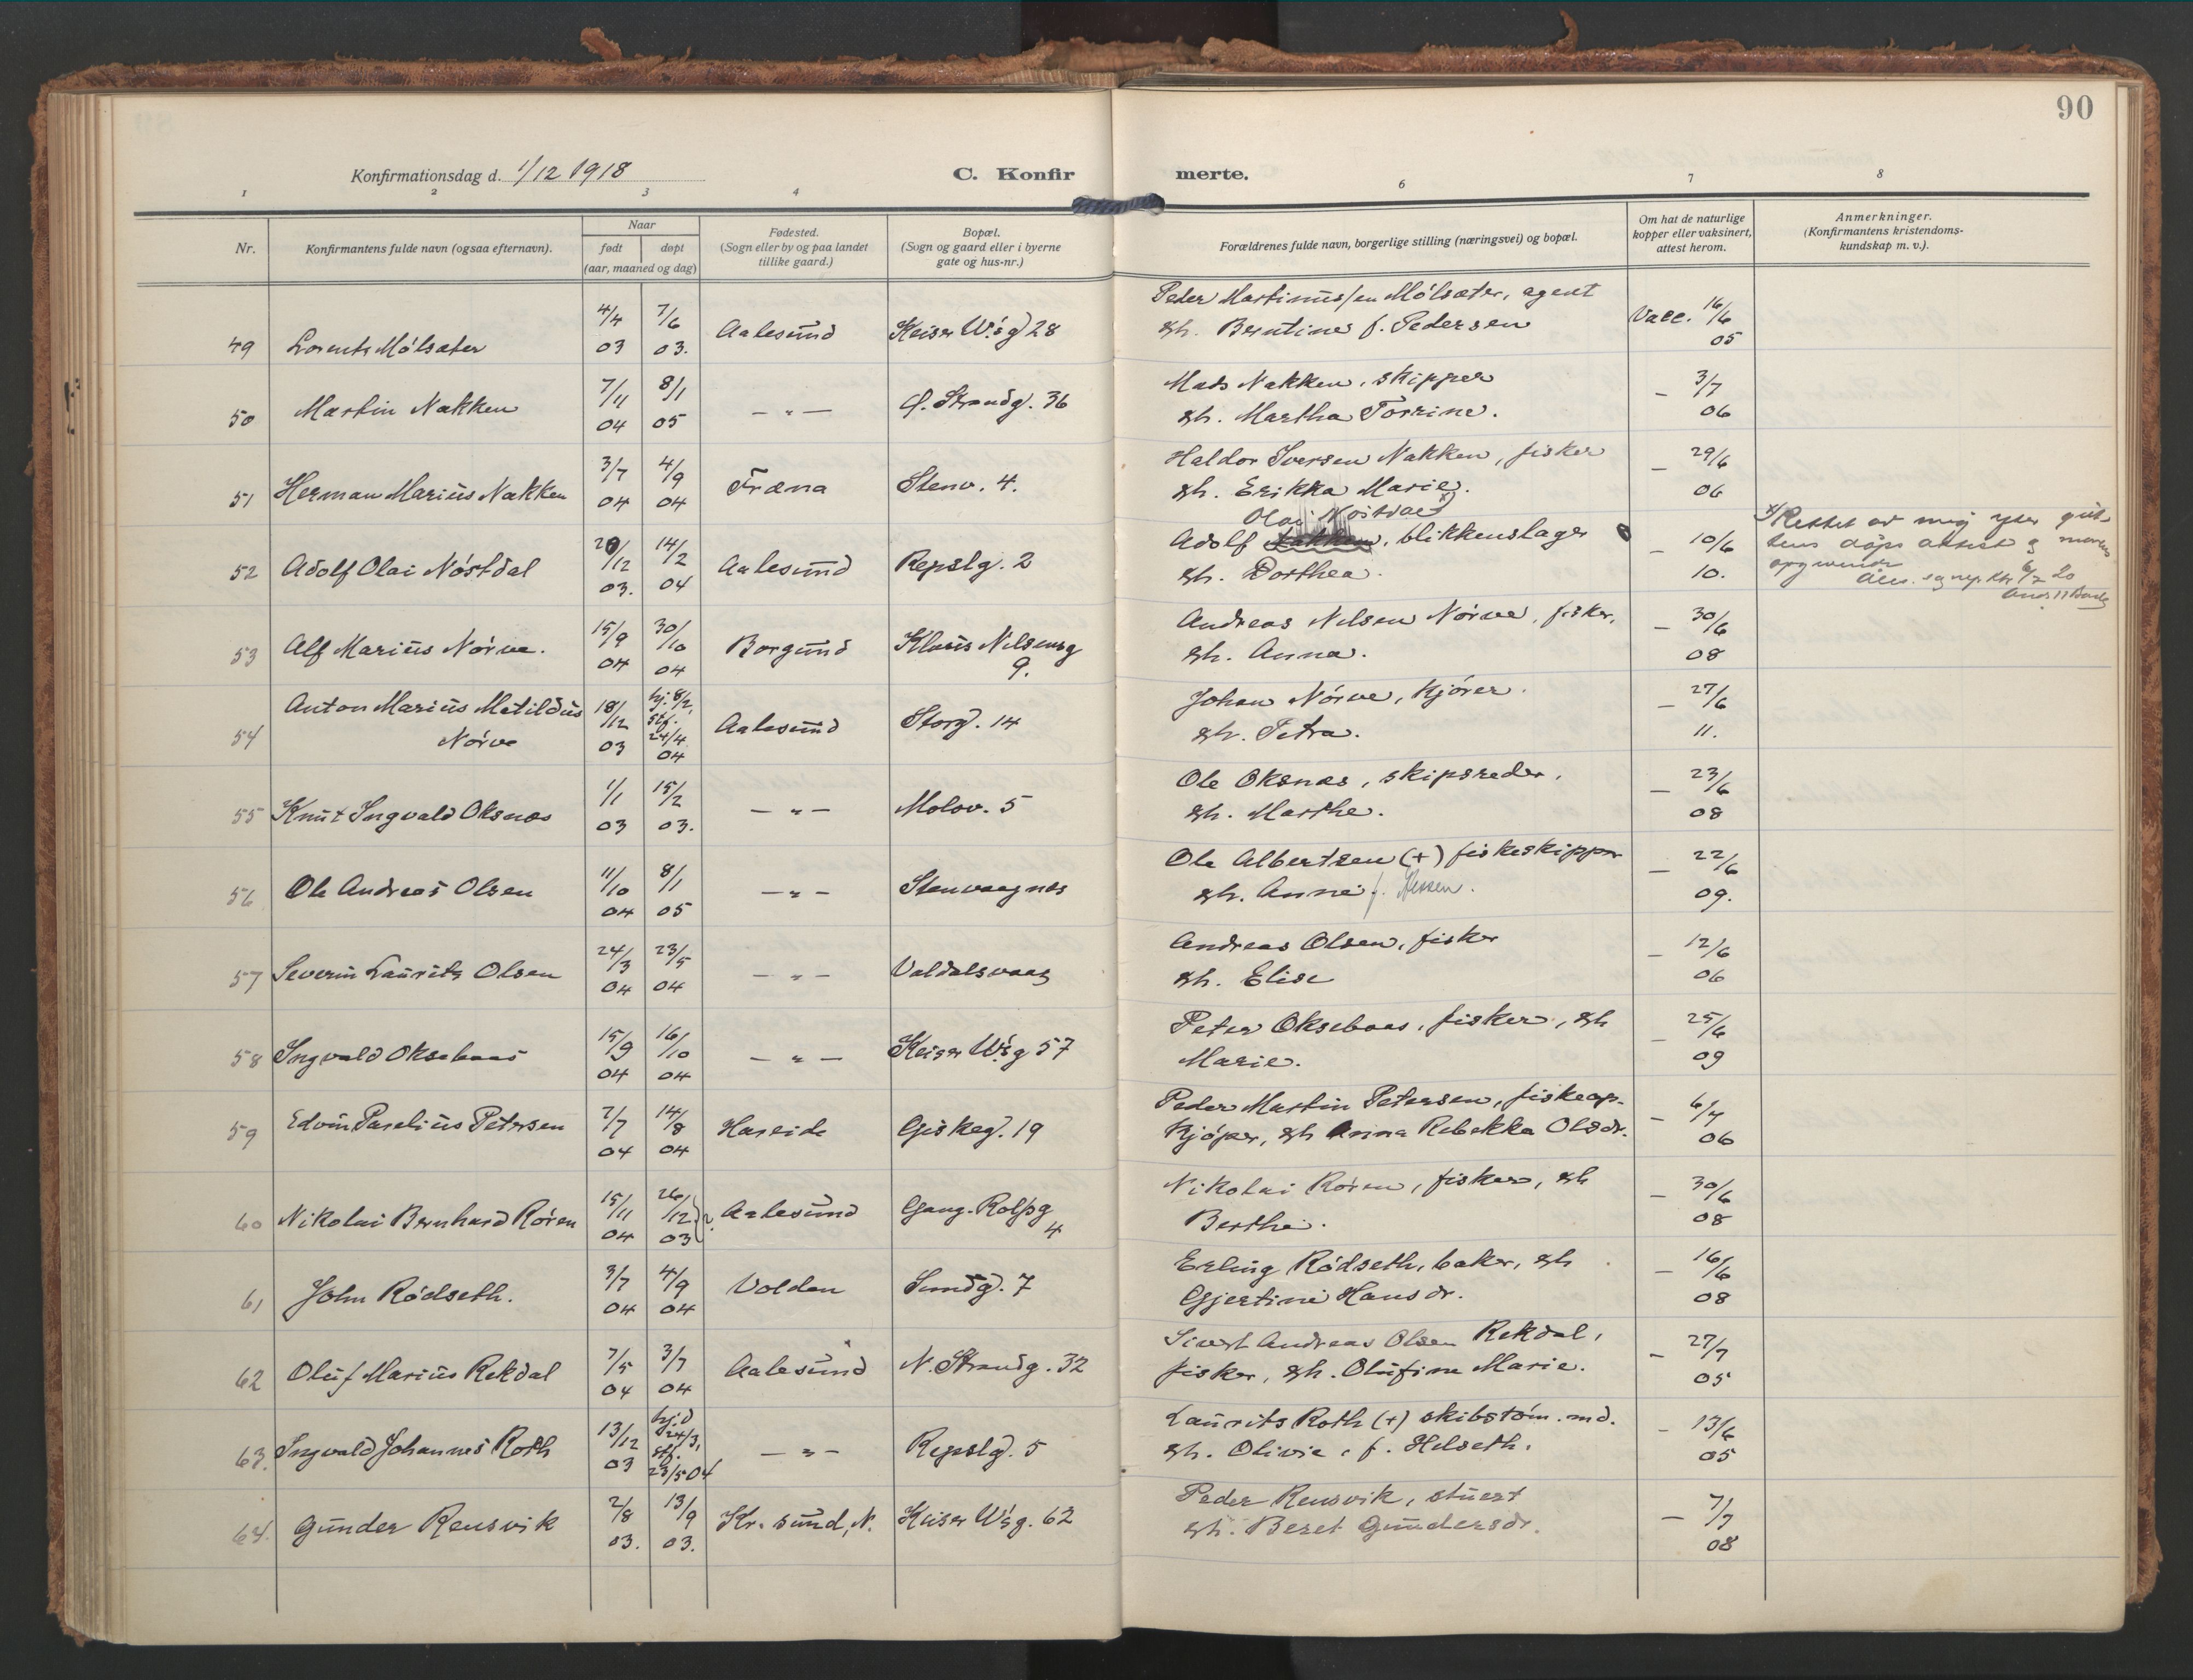 90
Konfirmationsdag d. 1/12 1918
C. Konfirmerte.
1 2 3 4 6 7 8
Nr.
Konfirmantens fulde navn (ogsaa efternavn).
Naar
født døpt
(aar, maaned og dag)
Fødested.
(Sogn eller by og paa landet
tillike gaard.)
Bopæl.
(Sogn og gaard eller i byerne
gate og hus-nr.)
Forældrenes fulde navn, borgerlige stilling (næringsvei) og bopæl.
Om hat de naturlige
kopper eller vaksinert,
attest herom.
Anmerkninger.
(Konfirmantens kristendoms-
kundskap m. v.).
49 Lorents Mólsæter 4/4 03 7/6 03. Aalesund Keiser W.'s g 28
Peder Martinussen Mólsæter, agent
&h. Berntine f. Pedersen
Vacc. 16/6 05
50 Martin Nakken 7/11 04 8/1 05 — " — Ø. Strandg. 36
Mads Nakken, skipper
&h. Martha Torrine.
— 3/7 06
51 Herman Marius Nakken 3/7 04 4/9 04 Fræna Stenv. 4.
Haldor Iversen Nakken, fisker
&h. Erikka Marie.
— 29/6 06
52 Adolf Olai Nóstdal 20/12 03. 14/2 04 Aalesund Repslg. 2
Olai Nóstdal x)
Adolf , blikkenslager
&h. Dorthea.
— 10/6 10.
x) Rettet av mig efter gut-
tens dåps attest og morens
opgivende
6/7 20
53 Alf Marius Nórve. 15/9 04 30/10 04 Borgund Klaus Nilsensg 9.
Andreas Nilsen Nórve, fisker,
&h. Anna.
— 30/6 08
54 Anton Marius Matildus
Nórve 18/12 03 hj. 8/2, stf. 24/4 04 Aalesund Storg. 14
Johan Nórve, kjórer.
&h. Petra.
— 27/6 11.
55 Knut Ingvald Oksnæs 1/1 03 15/2 03. — " — Molov. 5
Ole Oksnæs, skipsreder,
&h. Marthe.
— 23/6 08
56 Ole Andreas Olsen 11/10 04 8/1 05 — " — Stenvaagnes
Ole Albertsen (+) fiskeskipper
&h. Anne f.
— 22/6 09.
57 Severin Laurits Olsen 24/3 04 23/5 04 — " — Valdalsvaag
Andreas Olsen, fisker
&h. Elise
— 12/6 06
58 Ingvald Oksebaas 15/9 04 16/10 04 — " — Keiser W.'s g 57
Peter Oksebaas, fisker, &h
Marie.
— 25/6 09
59 Edvin Paselius Petersen 7/7 04 14/8 04 Hareide Giskeg. 19
Peder Martin Petersen, fiskeop-
kjóper, &h Anna Rebekka Olsdr.
— 6/7 06
60 Nikolai Bernhard Róren 15/11 04 26/12 03 ? Aalesund Gang-Rolfsg 4
Nikolai Róren, fisker, &h
Berthe.
— 30/6 08
61 John Ródseth. 3/7 04 4/9 04 Volden Sundg. 7
Erling Ródseth, baker, &h
Gjertine Hansdr.
— 16/6 08
62 Oluf Marius Rekdal 7/5 04 3/7 04 Aalesund N. Strandg. 32
Sivert Andreas Olsen Rekdal,
fisker, &h. Olufine Marie.
— 27/7 05
63. Ingvald Johannes Roth 13/12 03 hj.d 24/3, stf. 23/5 04 — " — Repslg. 5
Laurits Roth (+) skibstóm.md.
&h. Olivie, f. Helseth.
— 13/6 05
64. Gunder Rensvik 2/8 03. 13/9 03. Kr. sund, N. Keiser W's g. 62
Peder Rensvik, stuert
&h. Beret Gundersdr.
— 7/7 08